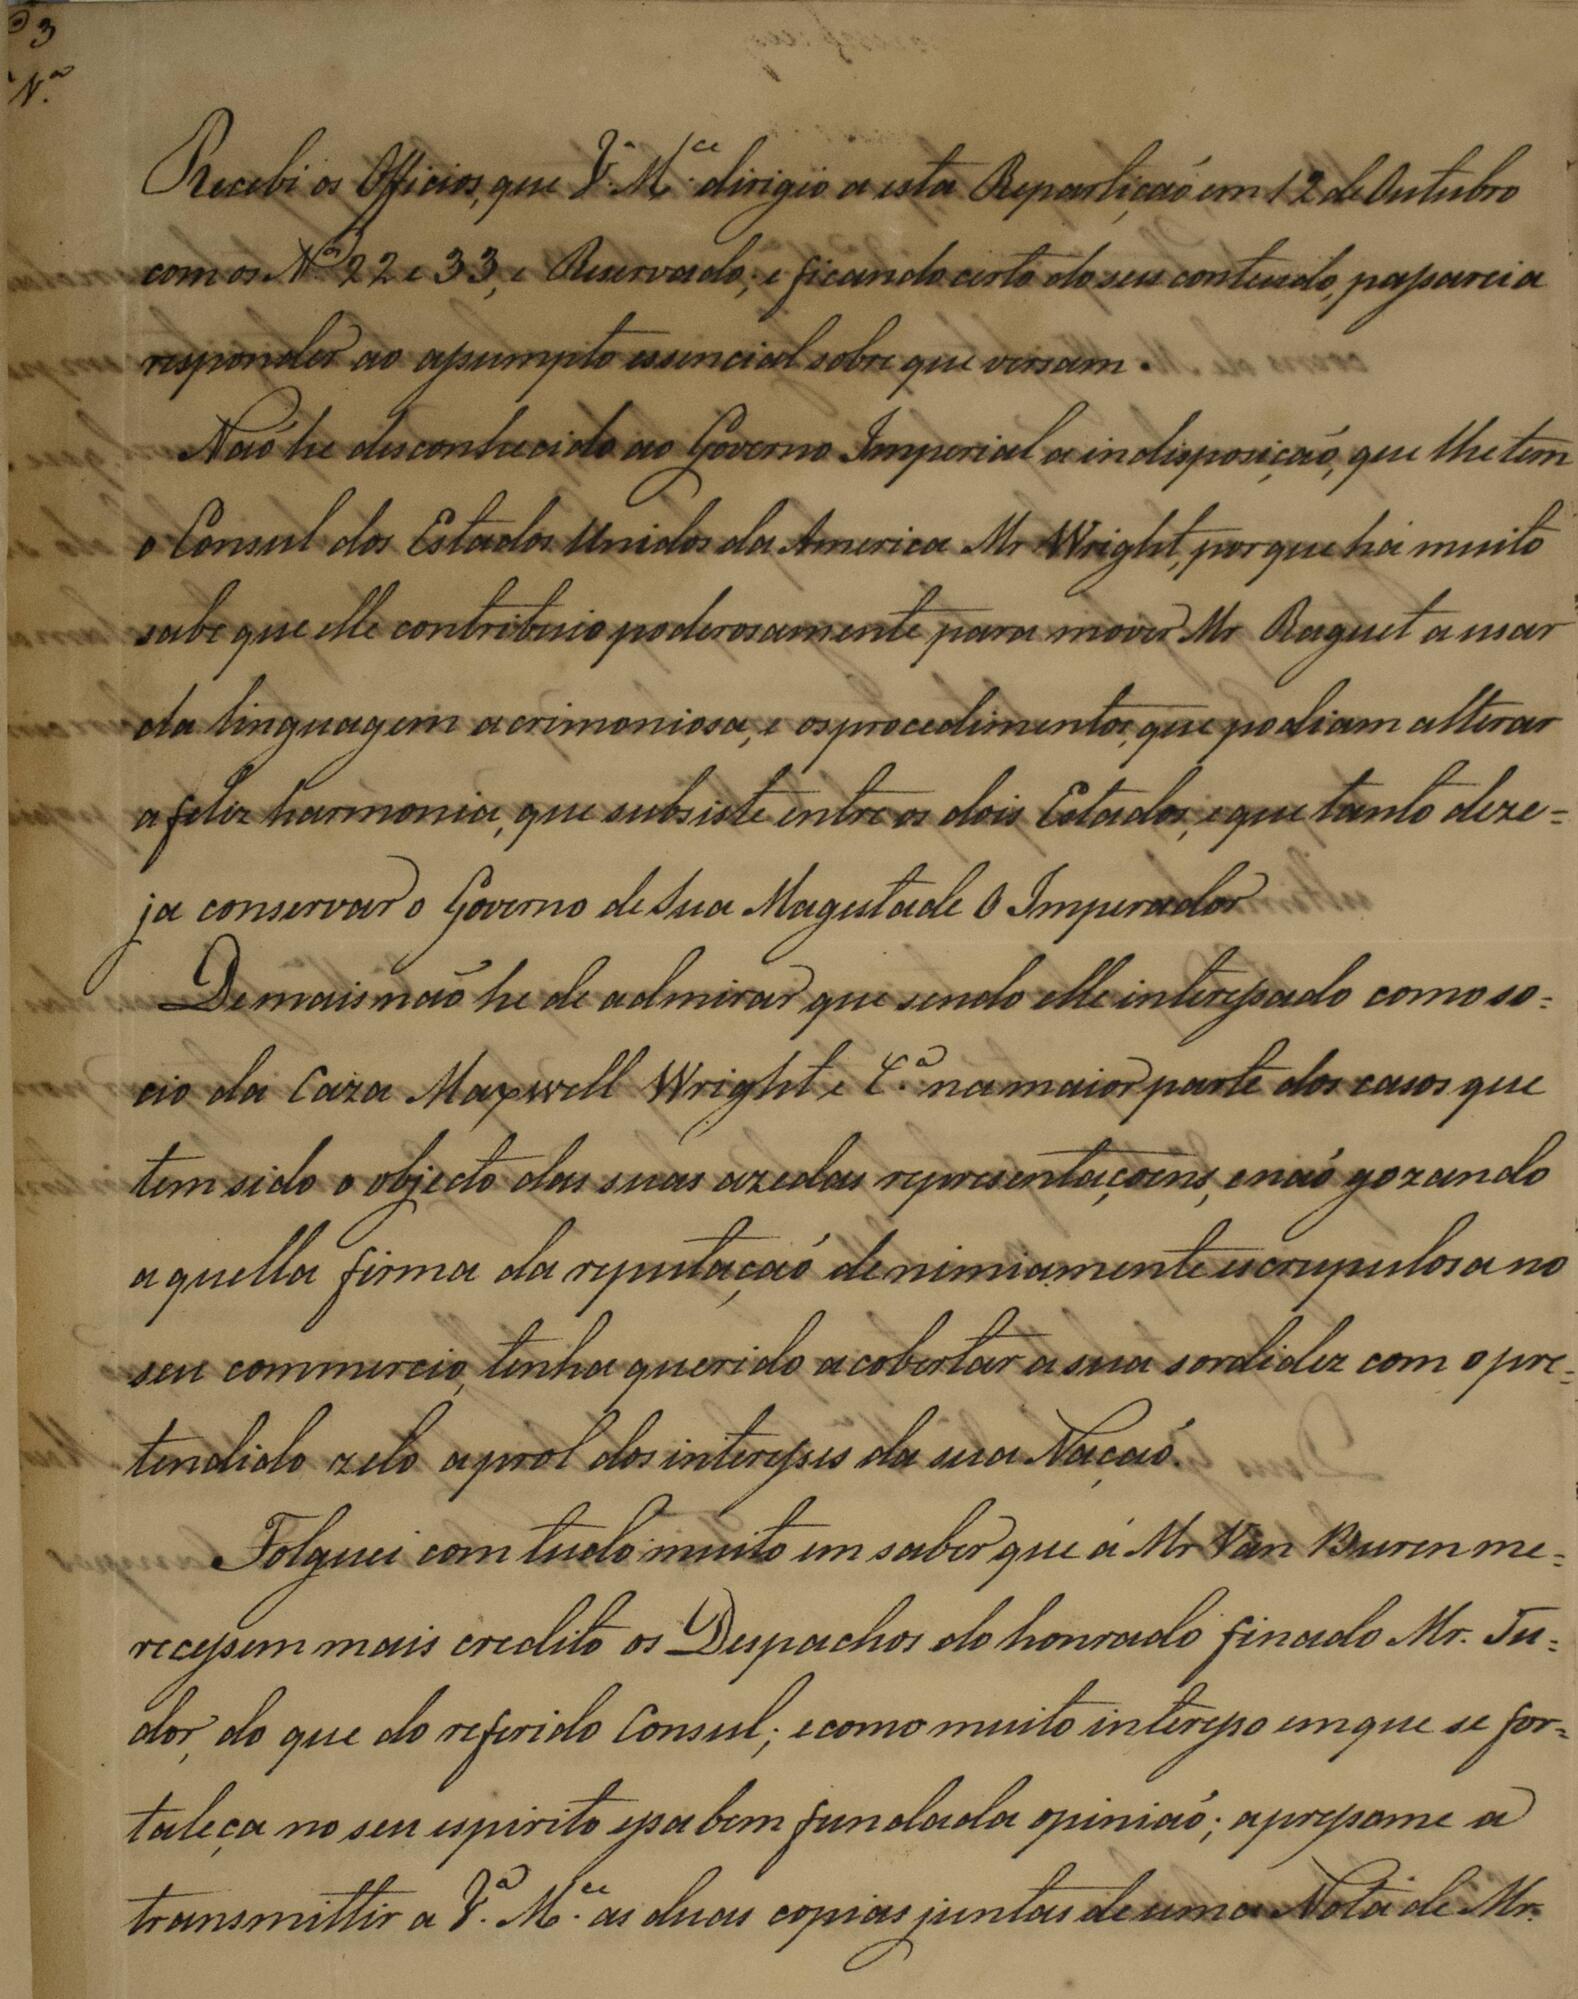 3
N.º
Recebi os Officios, que V.ª M.ce dirigio a esta Repartiçaõ em 12 de Outubro
com os N.os 22 e 33, e Reservado; e ficando certo do seu conteudo, passarei a
responder ao assumpto essencial sobre que versam.
Naõ he desconhecido ao Governo Imperial a indisposiçaõ, que lhe tem
o Consul dos Estados Unidos da America Mr Wright, porque há muito
sabe que elle contribuio poderosamente para mover Mr Raguet a usar
da linguagem acrimoniosa, e os procedimentos, que podiam alterar
a feliz harmonia, que subsiste entre os dois Estados, e que tanto deze=
ja conservar o Governo de Sua Magestade O Imperador
Demais naõ he de admirar que sendo elle interessado como so=
cio da Caza Maxwell Wright e C.ª na maior parte dos casos que
tem sido o objecto das suas azedas representaçoens, e naõ gozando
aquella firma da reputaçaõ de nimiamente escrupulosa no
seu commercio, tenha querido acobertar a sua sordidez com o pre=
tendido zelo a prol dos interesses da sua Naçaõ.
Folguei com tudo muito em saber que á Mr Van Buren me=
recessem mais credito os Despachos do honrado finado Mr. Tu=
dor, do que do referido Consul; e como muito interesso em que se for=
taleça no seu espirito essa bem fundada opiniaõ; apresso me a
transmittir a V.ª M.ce as duas copias juntas de uma Nota de Mr.